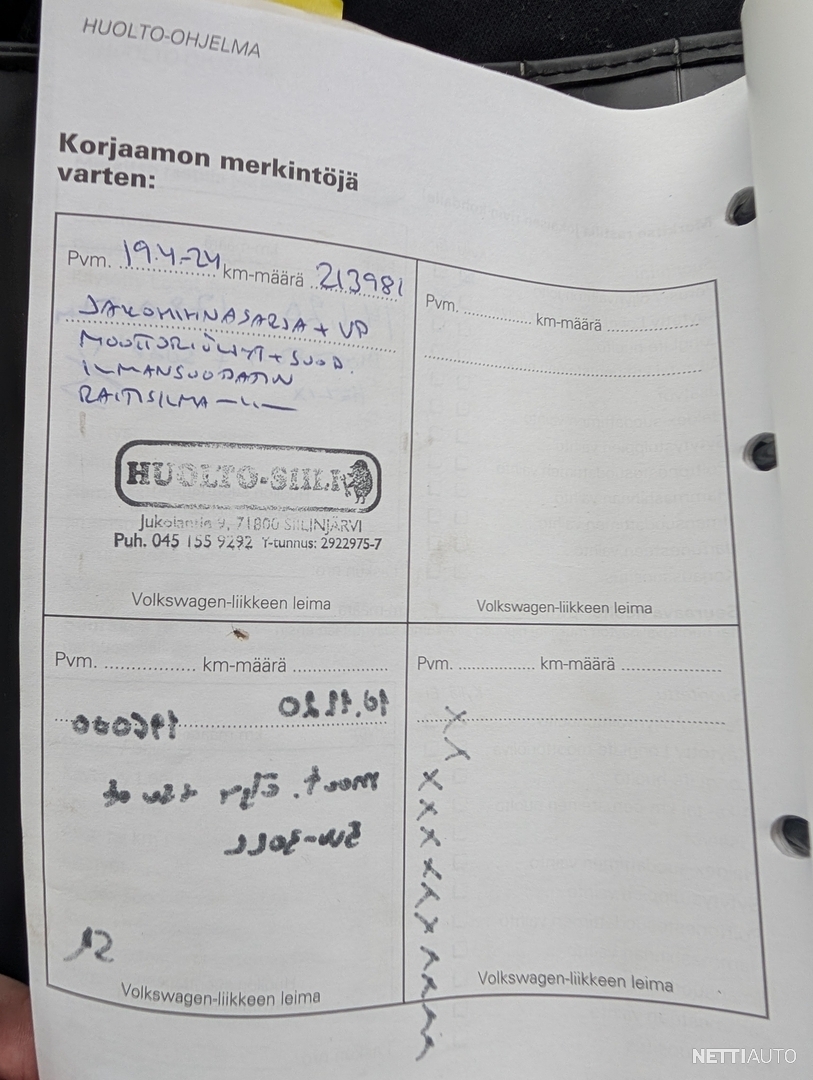 HUOLTO-OHJELMA
Korjaamon merkintöjä
varten:
Pvm. 19.4-24 km-määrä 213981
JAKOHIHNASARJA + VP
MOOTTORIÖLJYT + SUOD.
ILMANSUODATIN
RAITISILMA —"—
HUOLTO-SIILI
Jukolantie 9, 71800 SIILINJÄRVI
Puh. 045 155 9292 Y-tunnus: 2922975-7
Volkswagen-liikkeen leima
Pvm. km-määrä
Volkswagen-liikkeen leima
Pvm. km-määrä
Volkswagen-liikkeen leima
Pvm. km-määrä
Volkswagen-liikkeen leima
NETTIAUTO